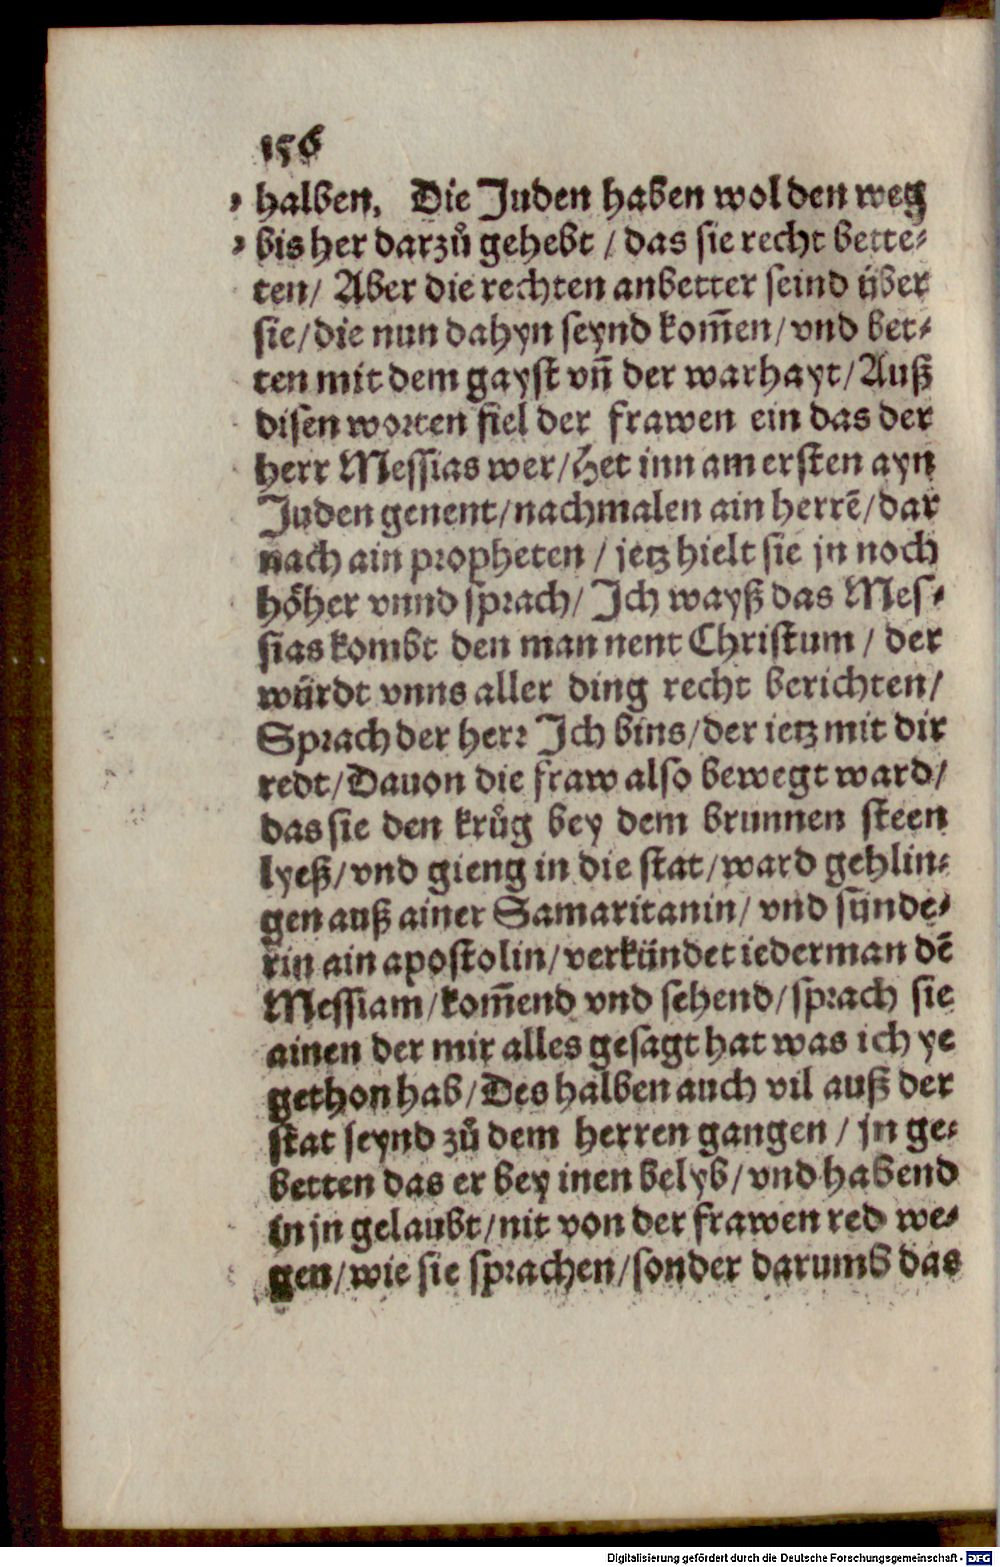 156
halben. Die Juden haben wol den weg
bis her darzuͦ gehebt / das sie recht bette⸗
ten / Aber die rechten anbetter seind uͤber
sie / die nun dahyn seynd kom̃en / vnd bet⸗
ten mit dem gayst vñ der warhayt / Auß
disen worten fiel der frawen ein das der
herr Messias wer / Het inn am ersten ayn
Juden genent / nachmalen ain herrẽ / dar
nach ain propheten / jetz hielt sie jn noch
hoͤher vnnd sprach / Ich wayß das Mes⸗
sias kombt den man nent Christum / der
wuͤrdt vnns aller ding recht berichten /
Sprach der herr Ich bins / der ietz mit dir
redt / Dauon die fraw also bewegt ward /
das sie den kruͦg bey dem brunnen steen
lyeß / vnd gieng in die stat / ward gehlin⸗
gen auß ainer Samaritanin / vnd suͤnde⸗
rin ain apostolin / verkuͤndet iederman dẽ
Messiam / kom̃end vnd sehend / sprach sie
ainen der mir alles gesagt hat was ich ye
gethon hab / Des halben auch vil auß der
stat seynd zuͦ dem herren gangen / jn ge⸗
betten das er bey inen belyb / vnd habend
in jn gelaubt / nit von der frawen red we⸗
gen / wie sie sprachen / sonder darumb das
Digitalisierung gefördert durch die Deutsche Forschungsgemeinschaft - DFG